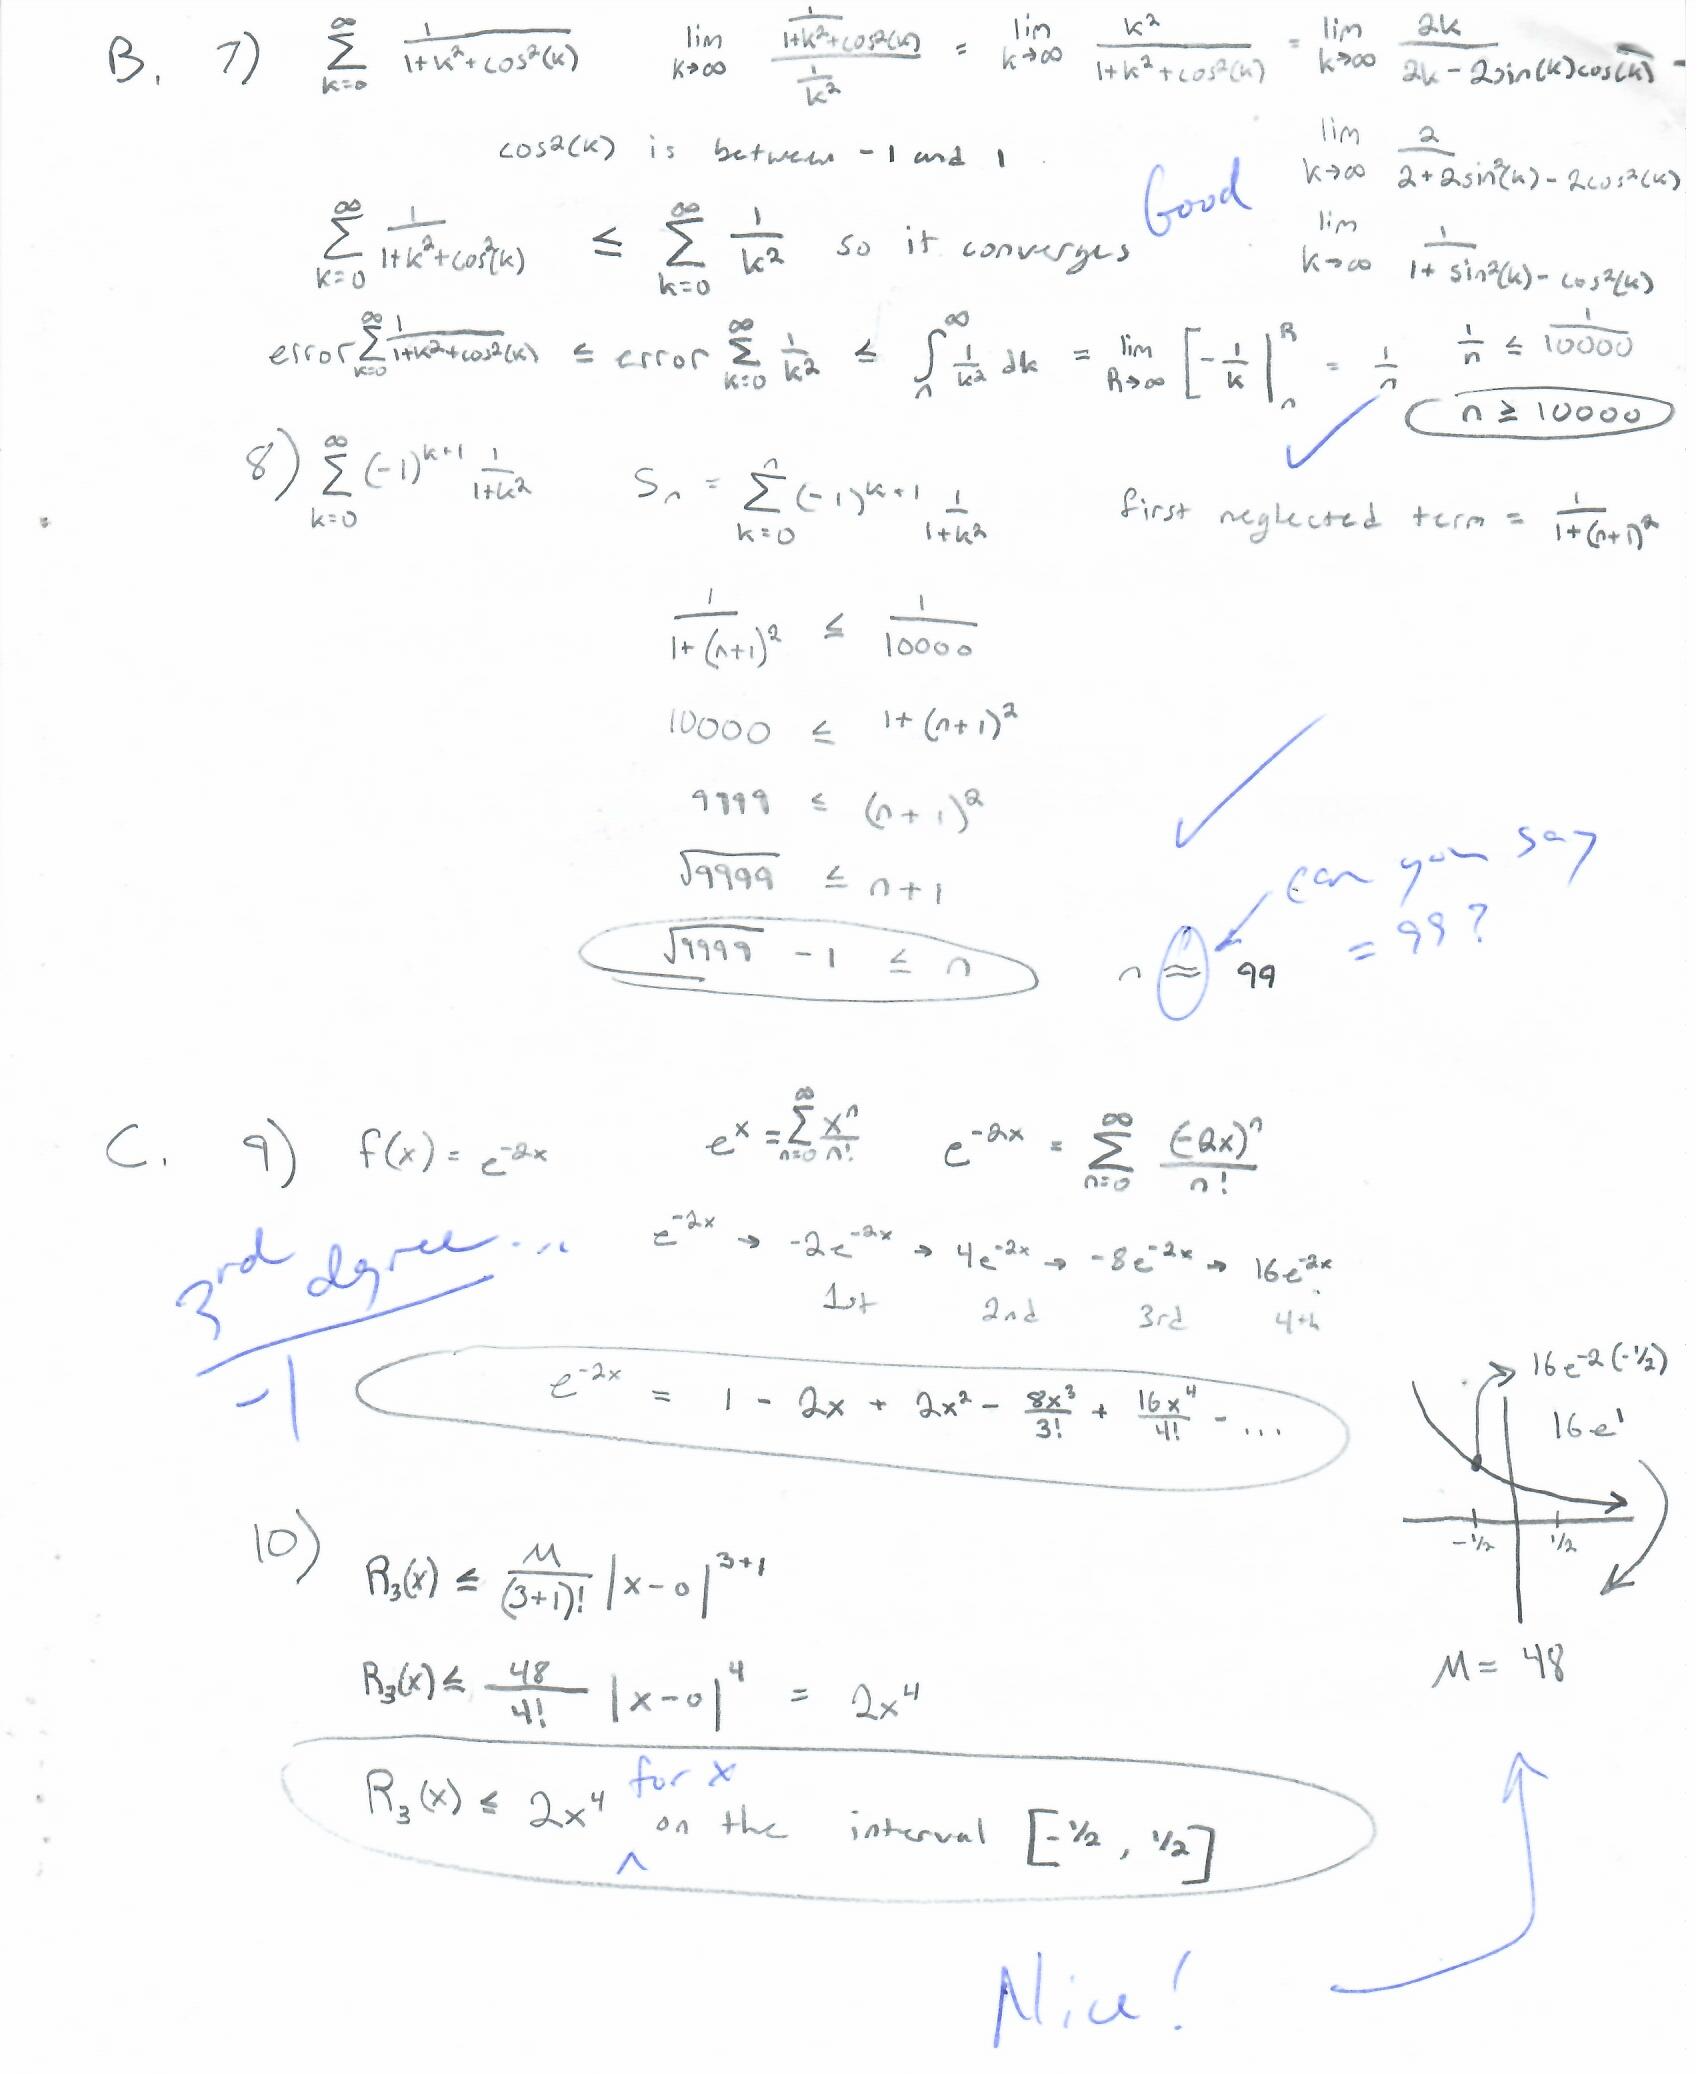 B. 7) \sum_{k=0}^{\infty} \frac{1}{1+k^2+cos^2(k)} \lim_{k→∞} \frac{\frac{1}{1+k^2+cos^2(k)}}{\frac{1}{k^2}} = \lim_{k→∞} \frac{k^2}{1+k^2+cos^2(k)} = \lim_{k→∞} \frac{2k}{2k-2sin(k)cos(k)} =
cos^2(k) is between -1 and 1 \lim_{k→∞} \frac{2}{2+2sin^2(k)-2cos^2(k)}
Good
\sum_{k=0}^{\infty} \frac{1}{1+k^2+cos^2(k)} ≤ \sum_{k=0}^{\infty} \frac{1}{k^2} so it converges \lim_{k→∞} \frac{1}{1+sin^2(k)-cos^2(k)}
error \sum_{k=0}^{\infty} \frac{1}{1+k^2+cos^2(k)} ≤ error \sum_{k=0}^{\infty} \frac{1}{k^2} ≤ \int_n^{\infty} \frac{1}{k^2} dk = \lim_{R→∞} [-\frac{1}{k}|_n^R = \frac{1}{n} \frac{1}{n} ≤ \frac{1}{10000}
n ≥ 10000
8) \sum_{k=0}^{\infty} (-1)^{k+1} \frac{1}{1+k^2} S_n = \sum_{k=0}^{n} (-1)^{k+1} \frac{1}{1+k^2} first neglected term = \frac{1}{1+(n+1)^2}
\frac{1}{1+(n+1)^2} ≤ \frac{1}{10000}
10000 ≤ 1+(n+1)^2
9999 ≤ (n+1)^2
√9999 ≤ n+1
can you say
= 99?
√9999 - 1 ≤ n n ≈ 99
C. 9) f(x) = e^{-2x} e^x = \sum_{n=0}^{\infty} \frac{x^n}{n!} e^{-2x} = \sum_{n=0}^{\infty} \frac{(-2x)^n}{n!}
3rd degree...
-1
e^{-2x} → -2e^{-2x} → 4e^{-2x} → -8e^{-2x} → 16e^{-2x}
1st 2nd 3rd 4th
e^{-2x} = 1 - 2x + 2x^2 - \frac{8x^3}{3!} + \frac{16x^4}{4!} - ...
16e^{-2(-1/2)}
16e^1
-1/2 1/2
M = 48
10) R_3(x) ≤ \frac{M}{(3+1)!} |x-0|^{3+1}
R_3(x) ≤ \frac{48}{4!} |x-0|^4 = 2x^4
R_3(x) ≤ 2x^4 for x on the interval [-1/2, 1/2]
Nice!